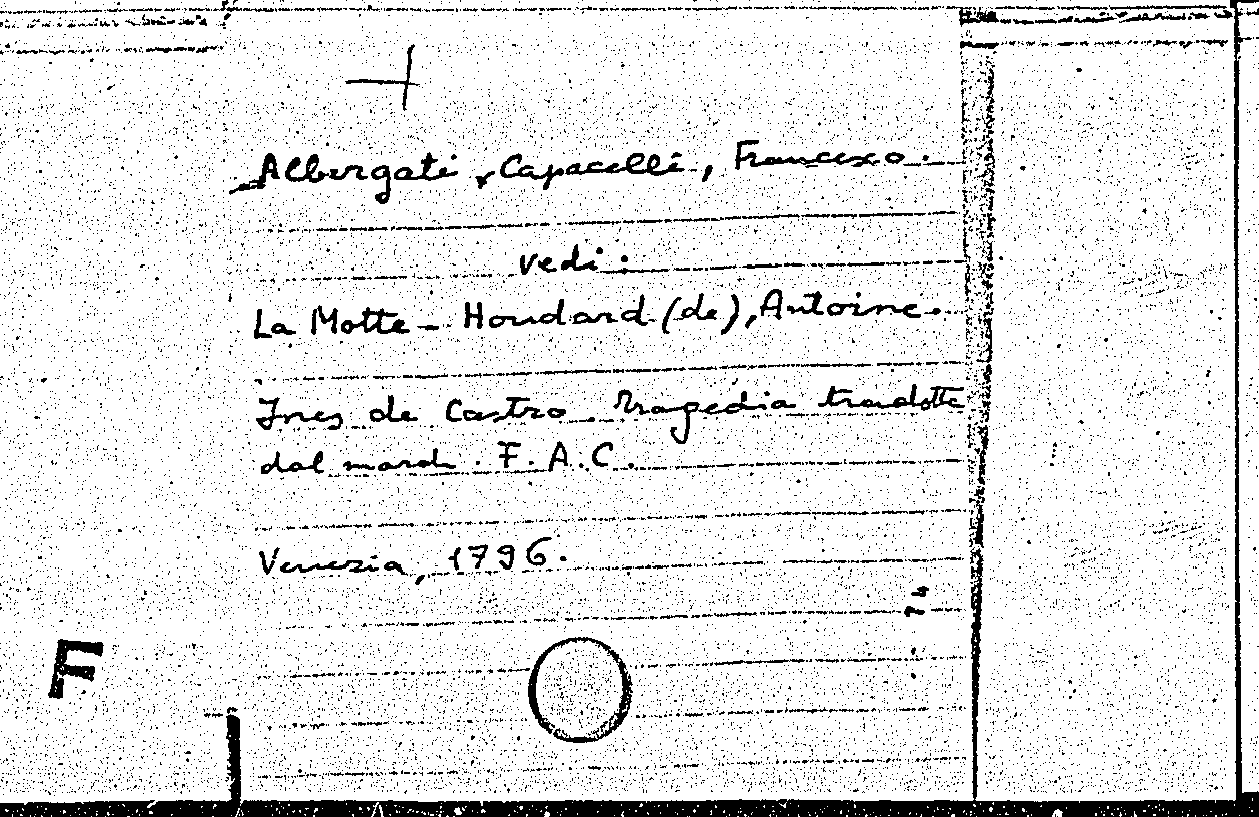 Albergati Capacelli, Francesco.
vedi:
La Motte - Houdard (de), Antoine.
Ines de Castro. Tragedia tradotta
dal march. F. A. C.
Venezia, 1796.
74
F